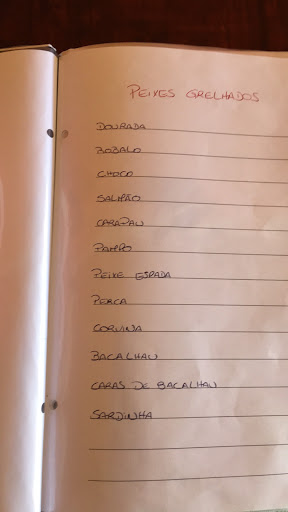 PEIXES GRELHADOS
DOURADA
ROBALO
CHOCO
SALMÃO
CARAPAU
PAMPO
PEIXE ESPADA
PERCA
CORVINA
BACALHAU
CARAS DE BACALHAU
SARDINHA